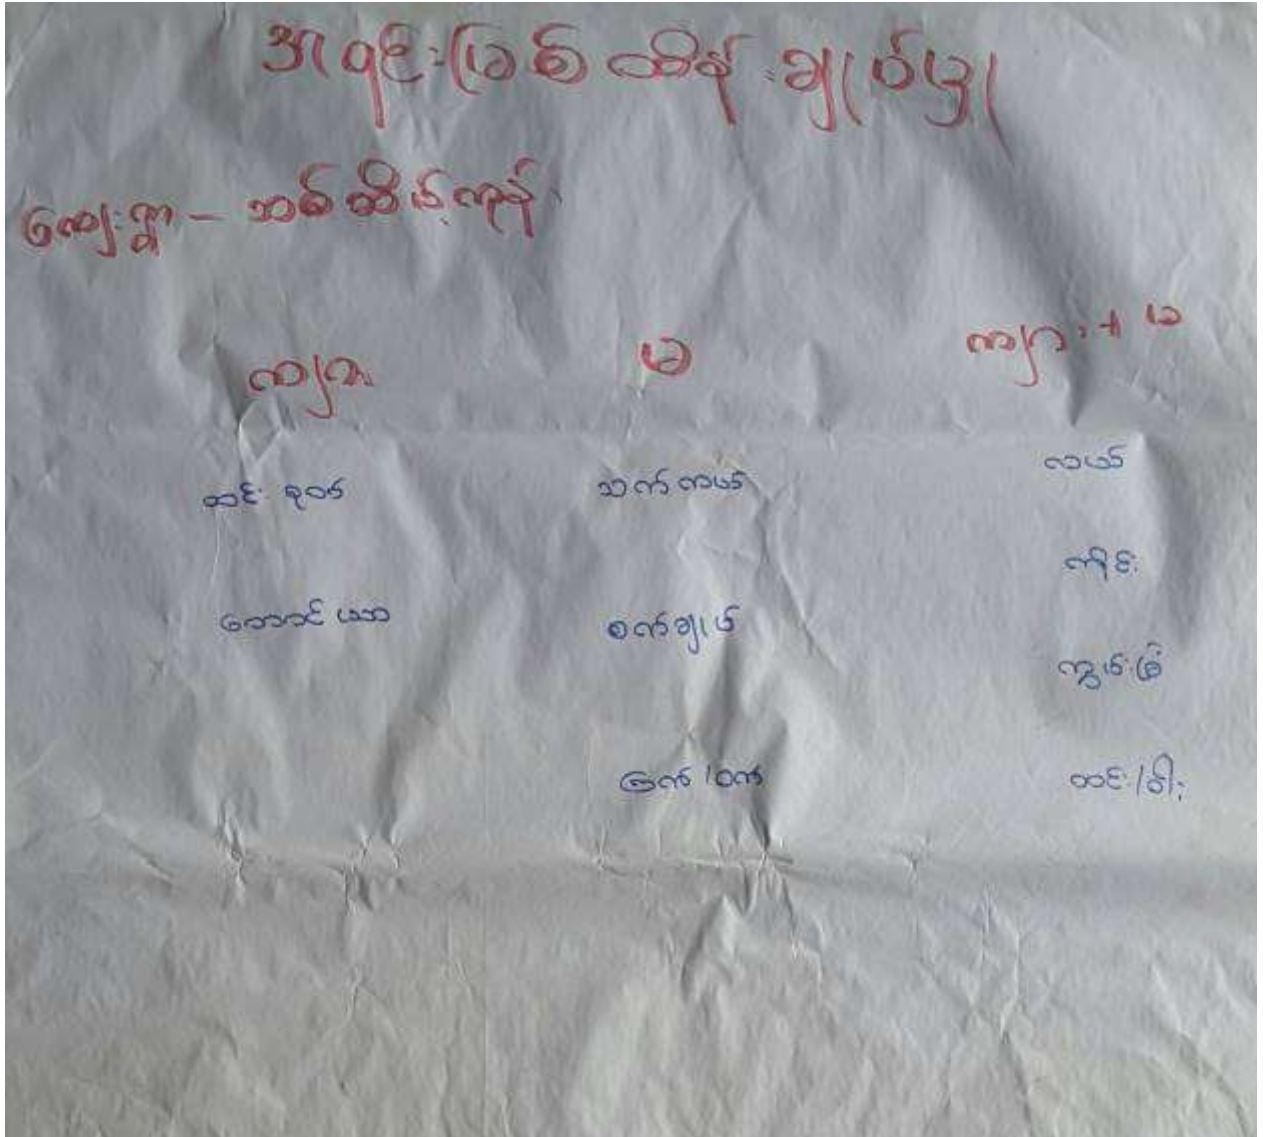 အရင်းမြစ်ထိန်းချုပ်မှု
ကျေးရွာ - သစ်ဆိမ့်ကုန်း
ကျား မ ကျား + မ
ထင်းခုတ် သက်ကယ် လယ်
တောင်ယာ စက်ချုပ် ကိုင်း
ကျွယ်းခြံ
ကြက်/ဝက် ထင်း/ဝါး